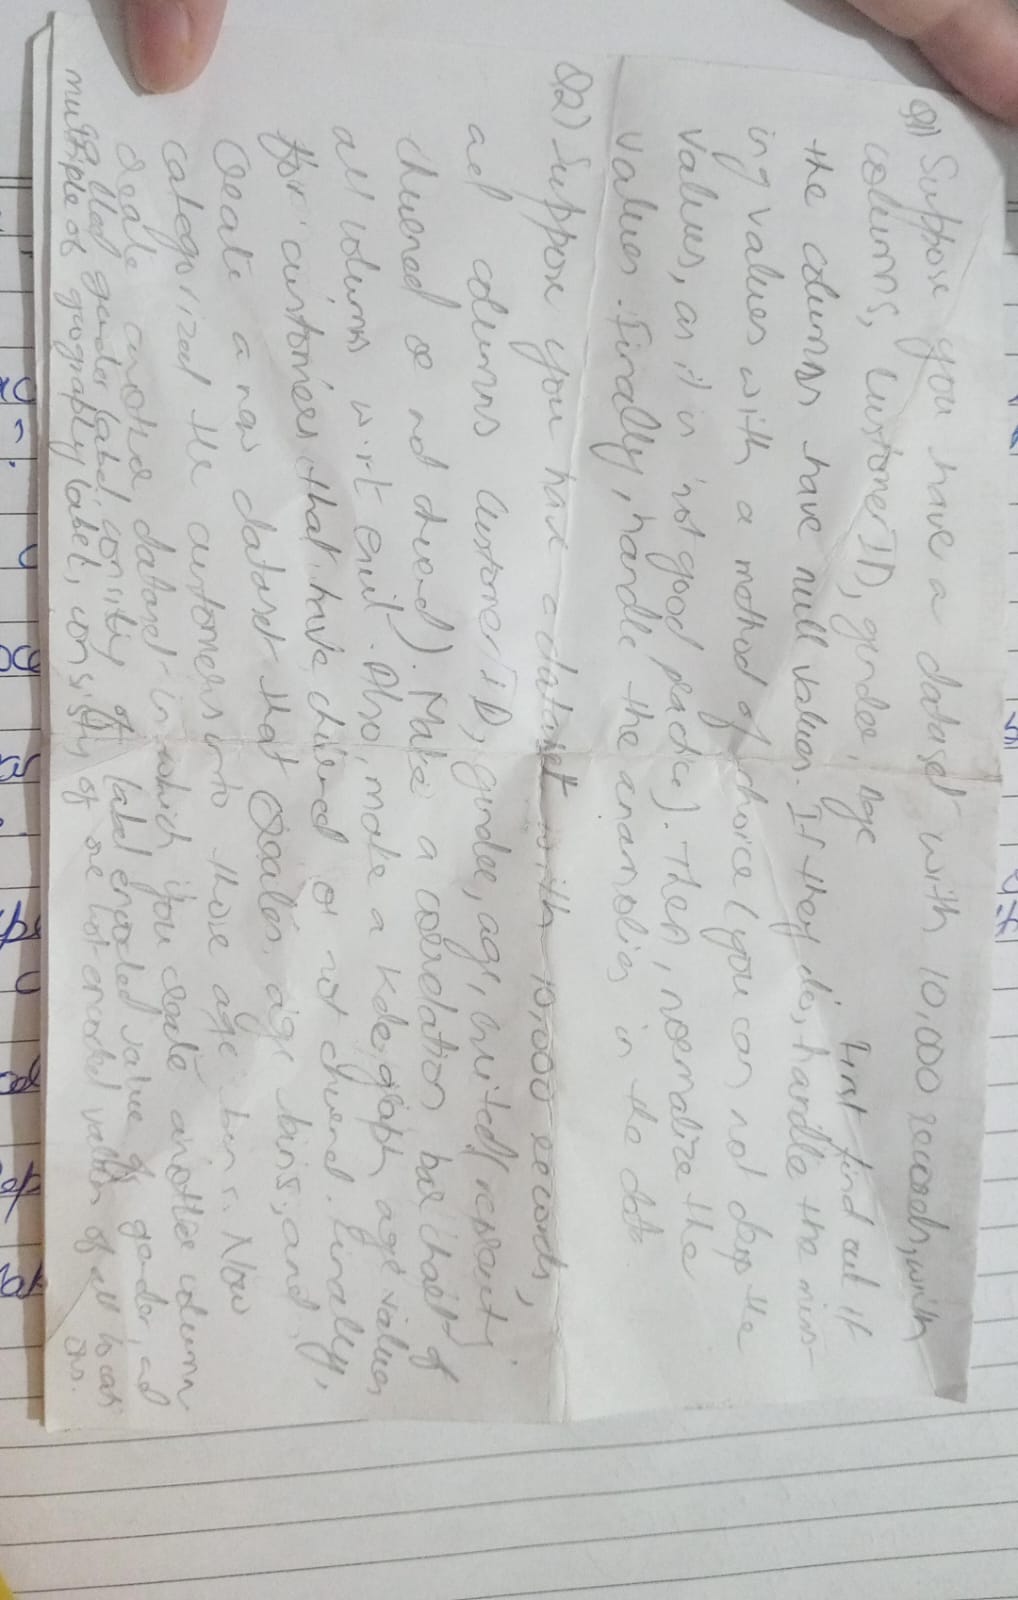 Q1) Suppose you have a dataset with 10,000 records, with
columns, CustomerID, gender, Age . First find out if
the columns have null values. If they do, handle the miss-
ing values with a method of choice (you can not drop the
values, as it is not good practice). Then, normalize the
values. Finally, handle the anamolies in the data
Q2) Suppose you have a dataset with 10,000 records,
ad columns CustomerID, gender, age, exited(
churned or not churned). Make a correlation bar chart of
all columns w.r.t exit. Also, make a Kde graph age values
for customers that have churned or not churned. Finally,
create a new dataset that creates age bins, and
categorized the customers into those age bins. Now
create another dataset in which you create another column
called gender label, consisting of label encoded value of gender, ad
multiple of geography label, consisting of one hot encoded values of all locati
ons.